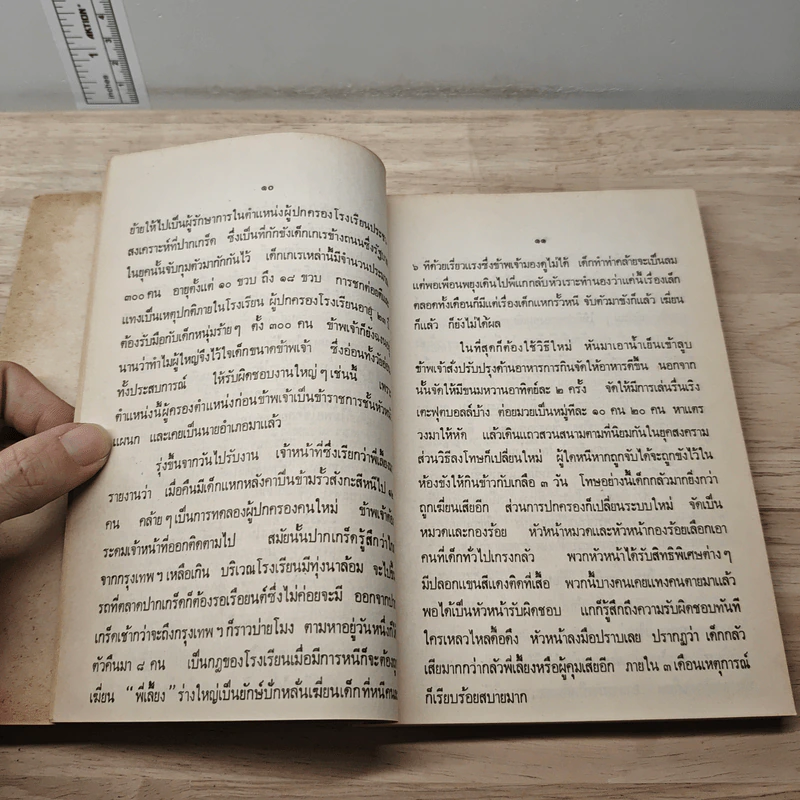 AKTION
inches
1
2
3
4
๑๐
ย้ายให้ไปเป็นผู้รักษาการในตำแหน่งผู้ปกครองโรงเรียน
สงเคราะห์ที่ปากเกร็ด ซึ่งเป็นที่กักขังเด็กเกเรข้างถนนซึ่ง
ในยุคนั้นจับกุมตัวมากักกันไว้ เด็กเกเรเหล่านี้มีจำนวน
๓๐๐ คน อายุตั้งแต่ ๑๐ ขวบ ถึง ๑๘ ขวบ การชกต่อย
แทงเป็นเหตุปกติภายในโรงเรียน ผู้ปกครองโรงเรียนอายุ
ต้องรับมือกับเด็กหนุ่มร้าย ๆ ตั้ง ๓๐๐ คน ข้าพเจ้าก็ยัง
นานว่าทำไมผู้ใหญ่จึงไว้ใจเด็กขนาดข้าพเจ้า ซึ่งอ่อนทั้ง
ทั้งประสบการณ์ ให้รับผิดชอบงานใหญ่ ๆ เช่นนี้
ตำแหน่งนี้ผู้ครองตำแหน่งก่อนข้าพเจ้าเป็นข้าราชการชั้น
แผนก และเคยเป็นนายอำเภอมาแล้ว
รุ่งขึ้นจากวันไปรับงาน เจ้าหน้าที่ซึ่งเรียกว่าพี่เลี้ยง
รายงานว่า เมื่อคืนมีเด็กแหกหลังคาปีนข้ามรั้วสังกะสีหนีไป
คน คล้าย ๆ เป็นการทดลองผู้ปกครองคนใหม่ ข้าพเจ้า
ระดมเจ้าหน้าที่ออกติดตามไป สมัยนั้นปากเกร็ดรู้สึกว่า
จากกรุงเทพ ฯ เหลือเกิน บริเวณโรงเรียนมีทุ่งนาล้อม จะไป
รถที่ตลาดปากเกร็ดก็ต้องรอเรือยนต์ซึ่งไม่ค่อยจะมี ออกจาก
เกร็ดเช้ากว่าจะถึงกรุงเทพ ฯ ก็ราวบ่ายโมง ตามหาอยู่วันหนึ่งก็ได้
ตัวคืนมา ๘ คน เป็นกฎของโรงเรียนเมื่อมีการหนีก็จะต้อง
เฆี่ยน “ พี่เลี้ยง ” ร่างใหญ่เป็นยักษ์ปักหลั่นเฆี่ยนเด็กที่หนี
๑๑
๖ ทีด้วยเรี่ยวแรงซึ่งข้าพเจ้ามองดูไม่ได้ เด็กทำท่าคล้ายจะเป็นลม
แต่พอเพื่อนพยุงเดินไปพี่แกกลับหัวเราะทำนองว่าแค่นี้เรื่องเล็ก
ตลอดทั้งเดือนก็มีแต่เรื่องเด็กแหกรั้วหนี จับตัวมาขังก็แล้ว เฆี่ยน
ก็แล้ว ก็ยังไม่ได้ผล
ในที่สุดก็ต้องใช้วิธีใหม่ หันมาเอาน้ำเย็นเข้าลูบ
ข้าพเจ้าสั่งปรับปรุงด้านอาหารการกินจัดให้อาหารดีขึ้น นอกจาก
นั้นจัดให้มีขนมหวานอาทิตย์ละ ๒ ครั้ง จัดให้มีการเล่นรื่นเริง
เตะฟุตบอลล์บ้าง ต่อยมวยเป็นหมู่ทีละ ๑๐ คน ๒๐ คน หาแตร
วงมาให้หัด แล้วเดินแถวสวนสนามตามที่นิยมกันในยุคสงคราม
ส่วนวิธีลงโทษก็เปลี่ยนใหม่ ผู้ใดหนีหากถูกจับได้จะถูกขังไว้ใน
ห้องขังให้กินข้าวกับเกลือ ๓ วัน โทษอย่างนี้เด็กกลัวมากยิ่งกว่า
ถูกเฆี่ยนเสียอีก ส่วนการปกครองก็เปลี่ยนระบบใหม่ จัดเป็น
หมวดและกองร้อย หัวหน้าหมวดและหัวหน้ากองร้อยเลือกเอา
คนที่เด็กทั่วไปเกรงกลัว พวกหัวหน้าได้รับสิทธิพิเศษต่าง ๆ
มีปลอกแขนสีแดงติดที่เสื้อ พวกนี้บางคนเคยแทงคนตายมาแล้ว
พอได้เป็นหัวหน้ารับผิดชอบ แกก็รู้สึกถึงความรับผิดชอบทันที
ใครเหลวไหลดื้อดึง หัวหน้าลงมือปราบเลย ปรากฏว่า เด็กกลัว
เสียมากกว่ากลัวพี่เลี้ยงหรือผู้คุมเสียอีก ภายใน ๓ เดือนเหตุการณ์
ก็เรียบร้อยสบายมาก